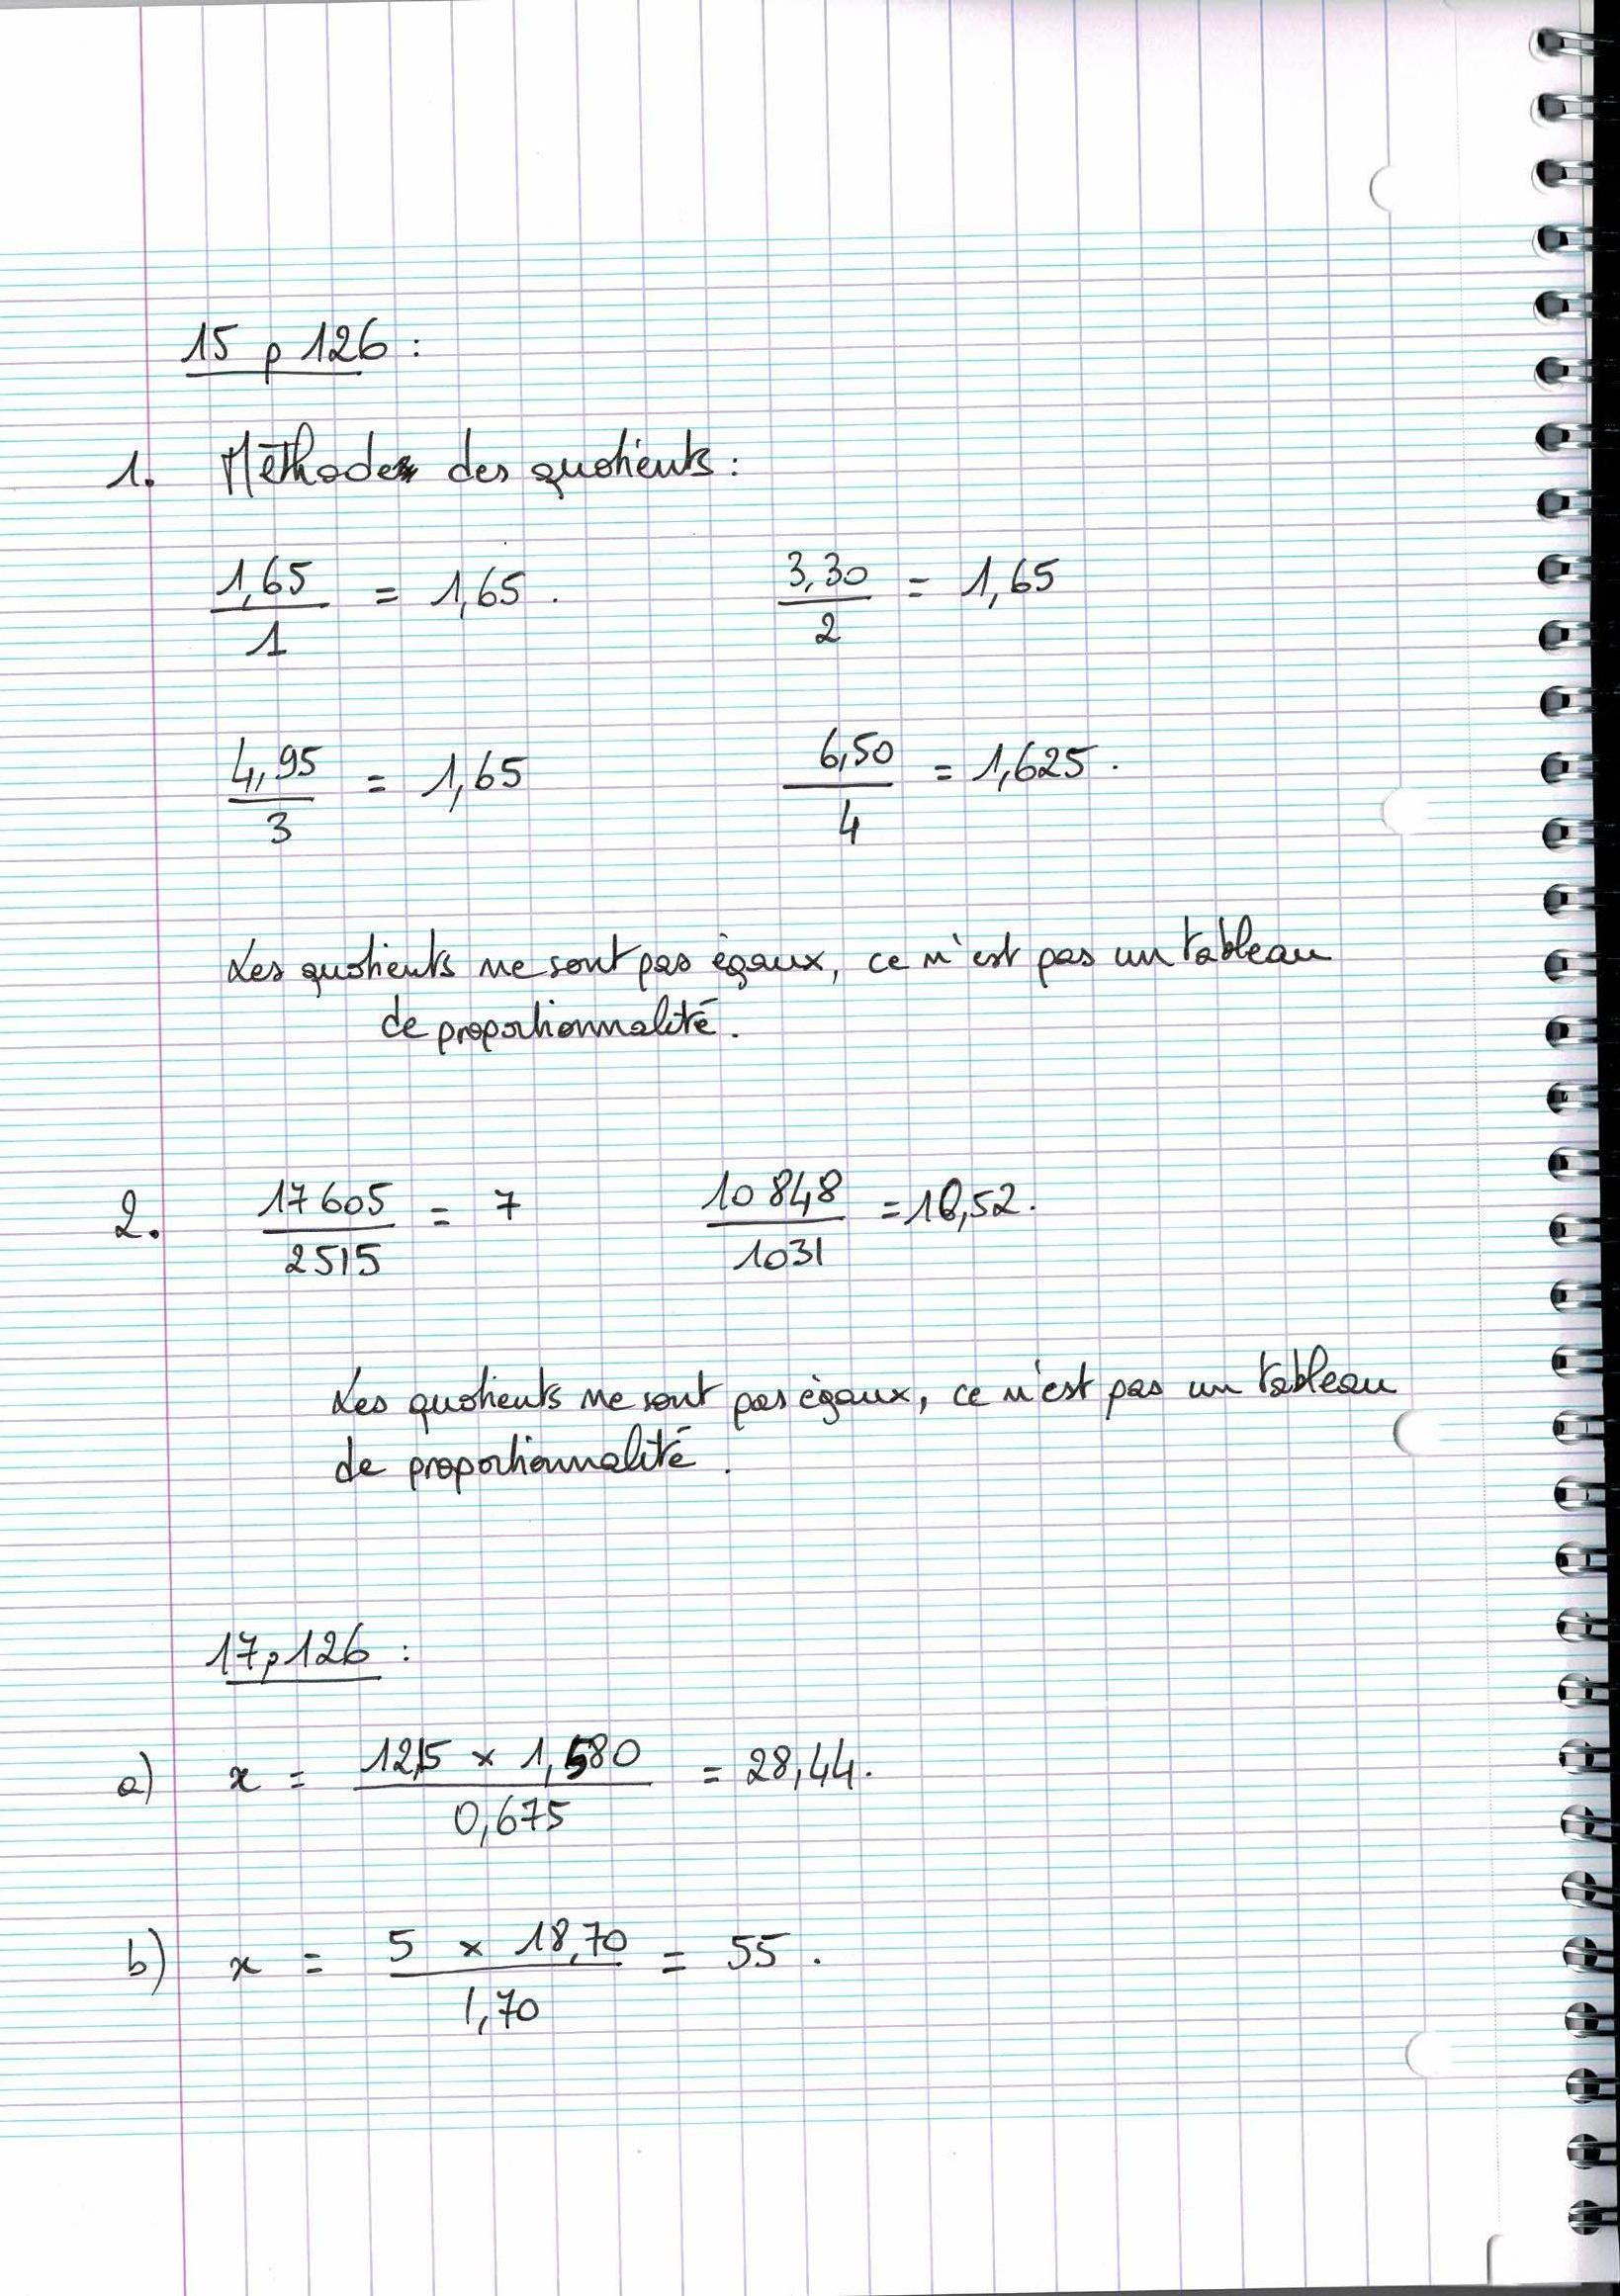 15 p 126 :
1. Méthode des quotients :
1,65/1 = 1,65. 3,30/2 = 1,65
4,95/3 = 1,65 6,50/4 = 1,625.
Les quotients ne sont pas égaux, ce n'est pas un tableau
de proportionnalité.
2. 17605/2515 = 7 10848/1031 = 10,52.
Les quotients ne sont pas égaux, ce n'est pas un tableau
de proportionnalité.
17p126 :
a) x = × / 0,675 = 28,44.
b) x = 5 × 18,70 / 1,70 = 55.